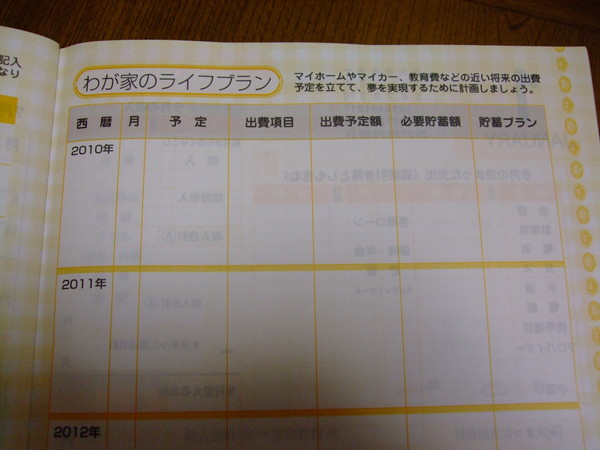 記入
なり
わが家のライフプラン
マイホームやマイカー、教育費などの近い将来の出費
予定を立てて、夢を実現するために計画しましょう。
西暦 月 予定 出費項目 出費予定額 必要貯蓄額 貯蓄プラン
2010年
2011年
2012年